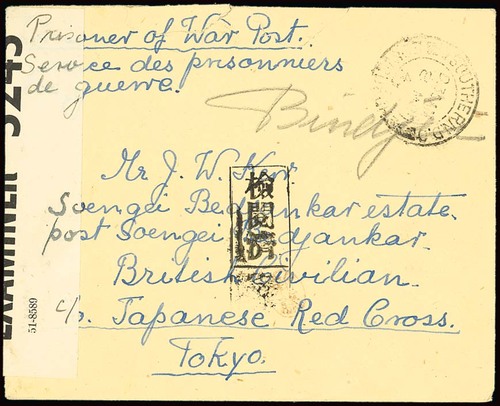 Prisoner of War Post.
Service des prisonniers
de guerre.
Mr J. W. Kerr
Soengei Bedjankar estate.
post Soengei Bedjankar.
British Civilian.
c/o. Japanese Red Cross.
Tokyo.
檢閲濟
EXAMINER 5245
51-8589